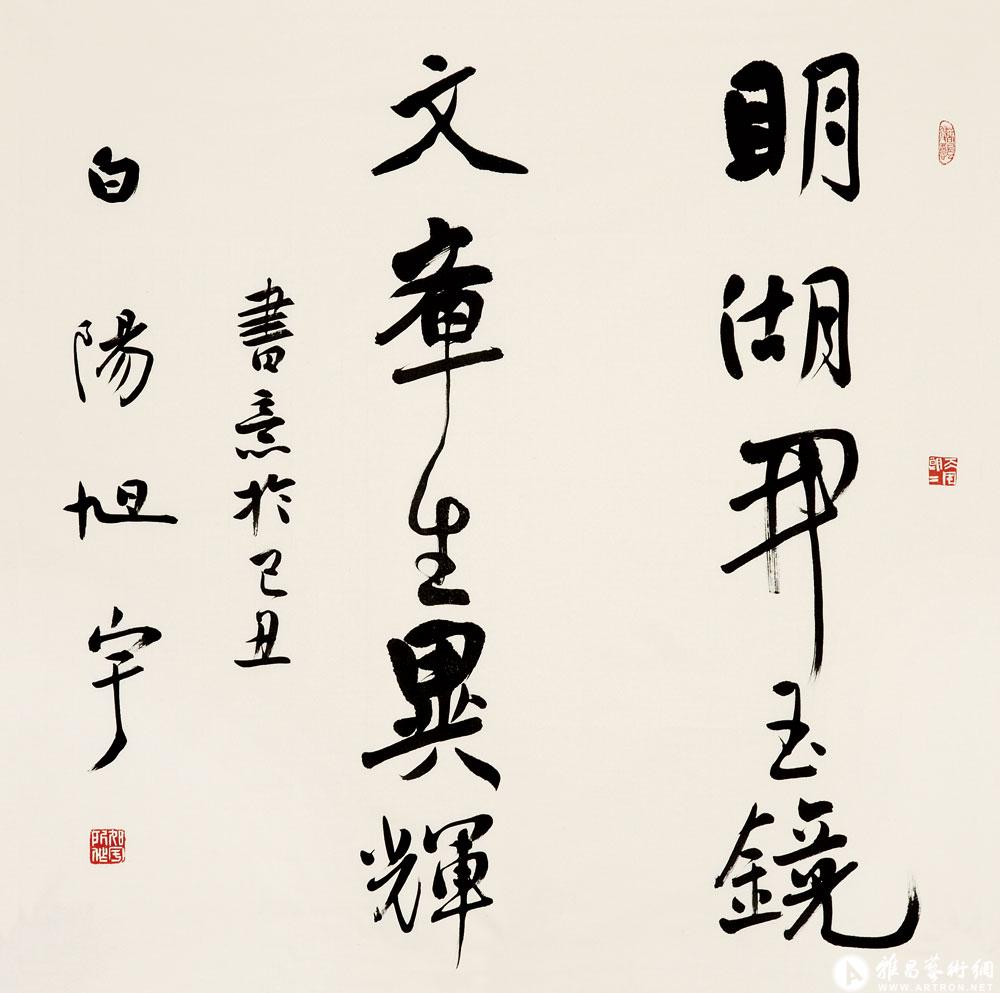 明湖開玉鏡
文章生異輝
書意於己丑
白陽旭宇
雅昌藝術網
WWW.ARTRON.NET